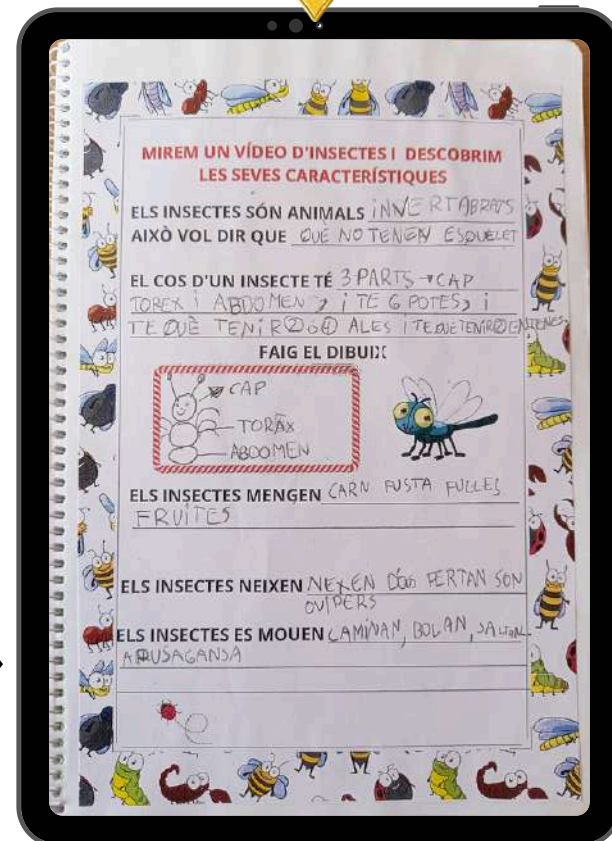 MIREM UN VÍDEO D'INSECTES I DESCOBRIM
LES SEVES CARACTERÍSTIQUES
ELS INSECTES SÓN ANIMALS INVERTABRATS
AIXÒ VOL DIR QUE QUE NO TENEN ESQUELET
EL COS D'UN INSECTE TÉ 3 PARTS → CAP
TOREX I ABDOMEN, I TE 6 POTES, I
TE QUÈ TENIR 2 o 4 ALES I TE QUE TENIR 2 ENTENES
FAIG EL DIBUIX
CAP
TORÀX
ABDOMEN
ELS INSECTES MENGEN CARN FUSTA FULLES
FRUITES
ELS INSECTES NEIXEN NEXEN PERTAN SON
OVIPERS
ELS INSECTES ES MOUEN CAMINAN, BOLAN, SALTAN
ARUSAGANSA